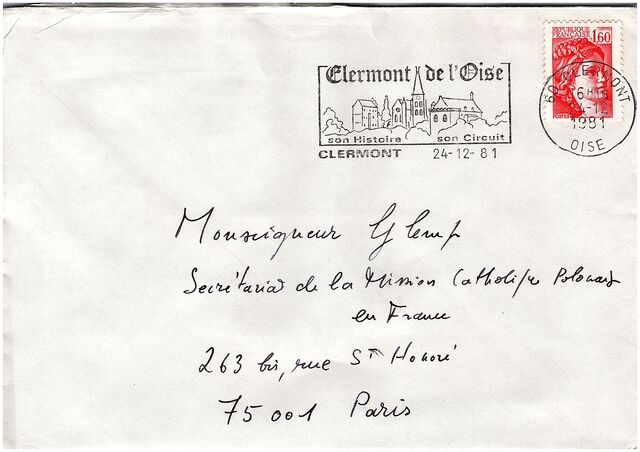 RÉPUBLIQUE
FRANÇAISE
1,60
Clermont de l'Oise
son Histoire son Circuit
CLERMONT 24-12-81
60 CLERMONT
24-12
1981
OISE
Monseigneur Glemp
Secrétariat de la Mission Catholique Polonaise
en France
263 bis, rue St Honoré
75001 Paris